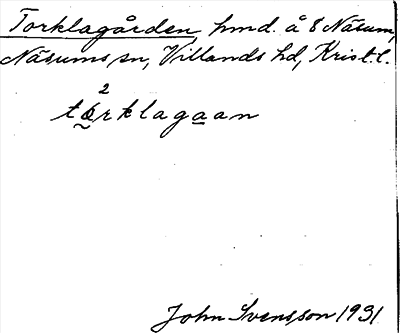 Torklagården, hmd. å 8 Näsum,
Näsums sn, Villands hd, Krist.l.
2
törklagaan
John Svensson 1931